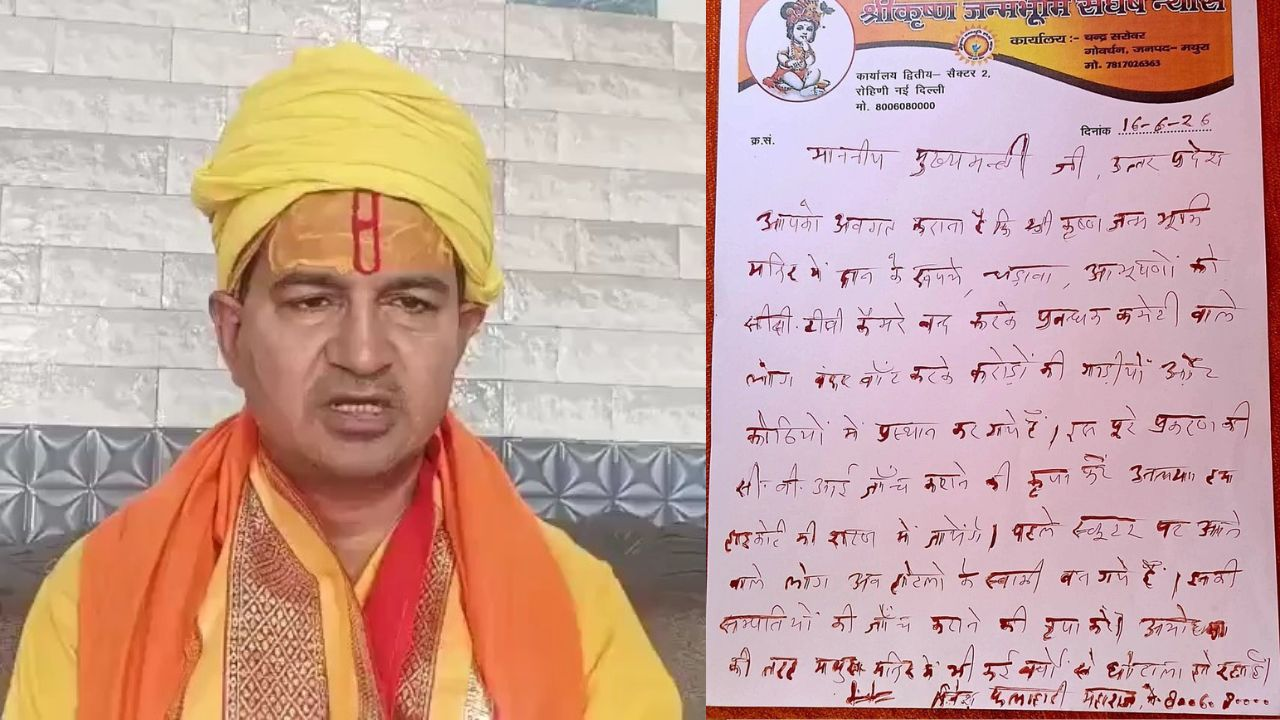 श्रीकृष्ण जन्मभूमि संघर्ष न्यास
कार्यालय :- चन्द्र सरोवर
गोवर्धन, जनपद- मथुरा
मो. 7817026363
कार्यालय द्वितीय- सैक्टर 2,
रोहिणी नई दिल्ली
मो. 8006080000
क्र.सं.
दिनांक 16-6-26
माननीय मुख्यमन्त्री जी, उत्तर प्रदेश
आपको अवगत कराना है कि श्री कृष्ण जन्म भूमि
मन्दिर में दान के रूपये, चढ़ावा, आभूषणों को
सीसी. टीवी कैमरे बन्द करके प्रबन्धक कमेटी वाले
लोग बंदर बाँट करके करोड़ों की गाड़ीयों और
कोठियों में प्रस्थान कर गये हैं। इस पूरे प्रकरण की
सी. बी. आई जाँच कराने की कृपा करें अन्यथा हम
हाइकोर्ट की शरण में जायेंगे। पहले स्कूटर पर आने
वाले लोग अब होटलो के स्वामी बन गये हैं। इनकी
सम्पत्तियों की जाँच कराने की कृपा करें। अयोध्या
की तरह मथुरा मन्दिर में भी कई वर्षों से घोटाला हो रहा है।
दिनेश फलाहारी महाराज, मो.